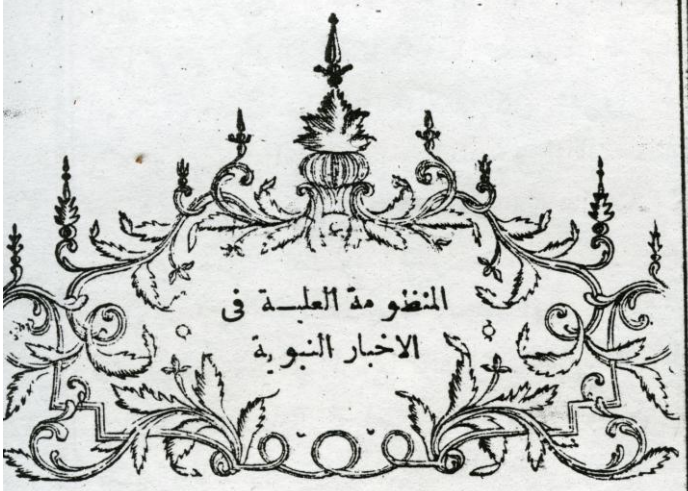 المنظومة العليـــة فى
الاخبار النبوية